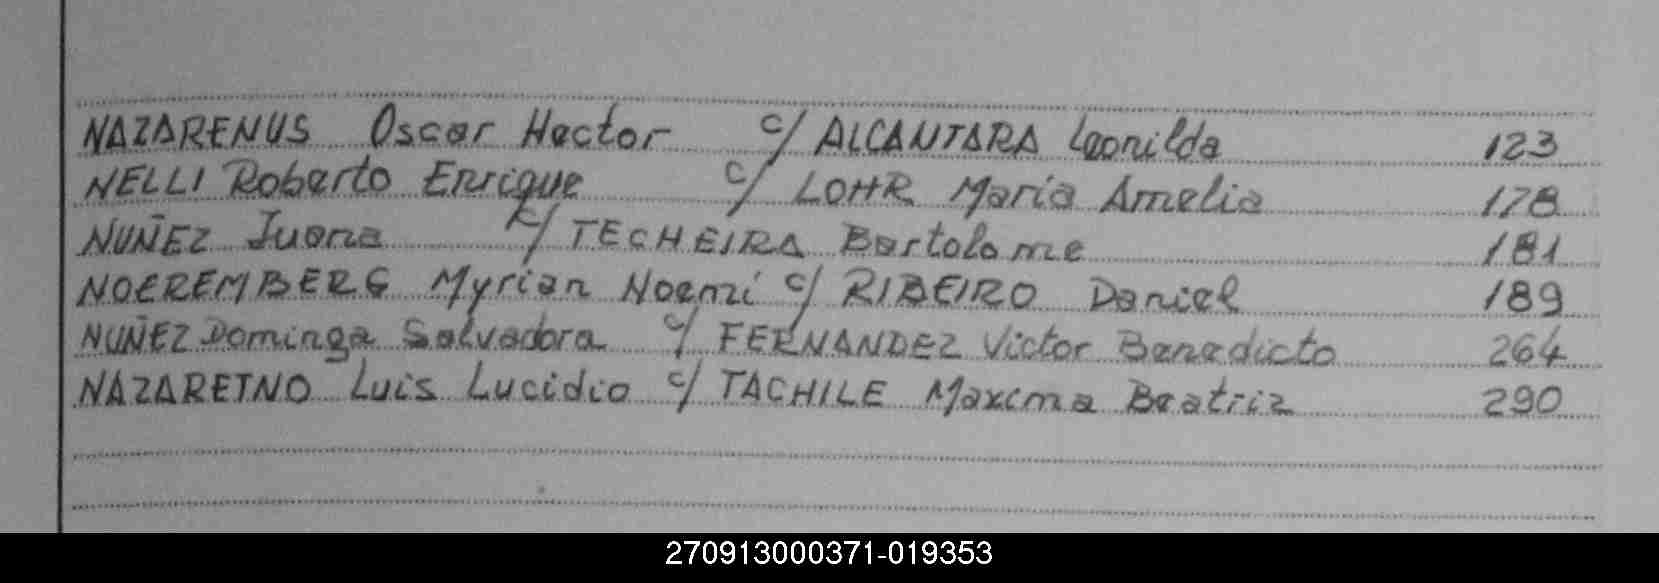 NAZARENUS Oscar Hector c/ ALCANTARA Leonilda 123
NELLI Roberto Enrique c/ LOHR Maria Amelia 178
NUÑEZ Juana c/ TECHEIRA Bartolome 181
NOEREMBERG Myrian Noemí c/ RIBEIRO Daniel 189
NUÑEZ Dominga Salvadora c/ FERNANDEZ Victor Benedicto 264
NAZARETNO Luis Lucidio c/ TACHILE Maxima Beatriz 290
270913000371-019353